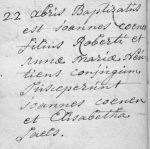 22 xbris Baptizatus
est Joannes coenen
filius Roberti et
Annæ Mariæ
tiens conjugum
Susceperunt
Joannes coenen
et Elisabetha
Jaels.